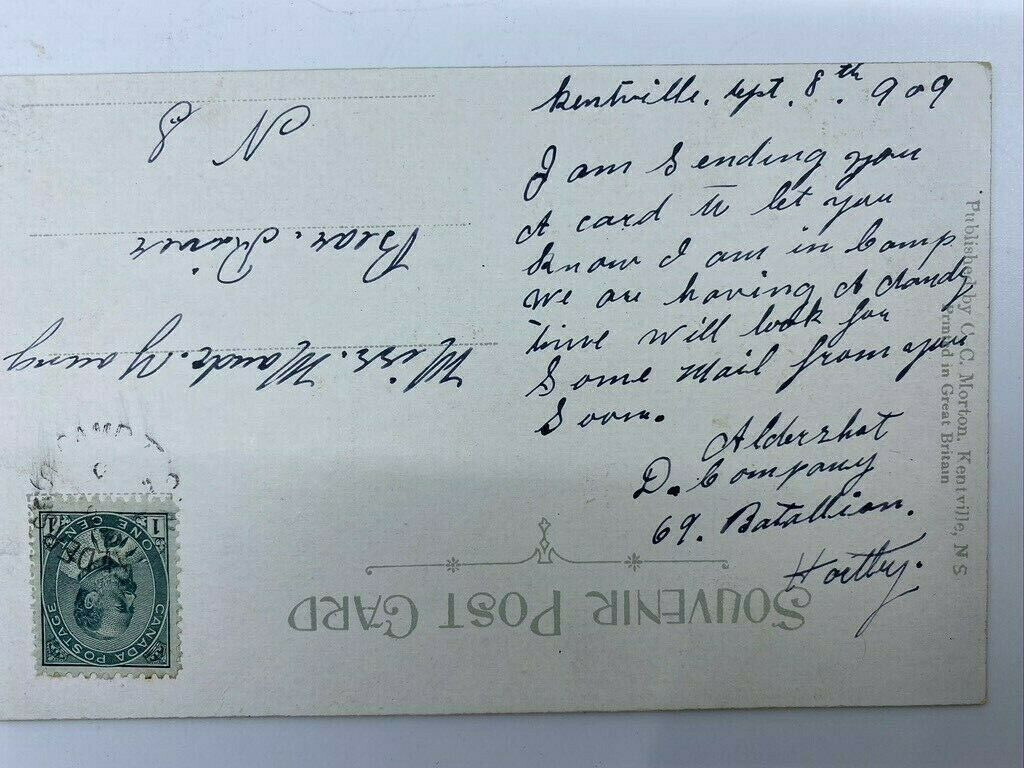 Kentville. Sept. 8.th 909
I am Sending you
A card to let you
know I am in Camp
We are having A dandy
time will look for
Some mail from you
Soon.
Aldershot
D. Company
69. Batallion.
Miss. Maude. Young
Bear. River
N S
SOUVENIR POST CARD
CANADA POSTAGE
ONE CENT
1 1
Published by C. C. Morton, Kentville, N S
Printed in Great Britain